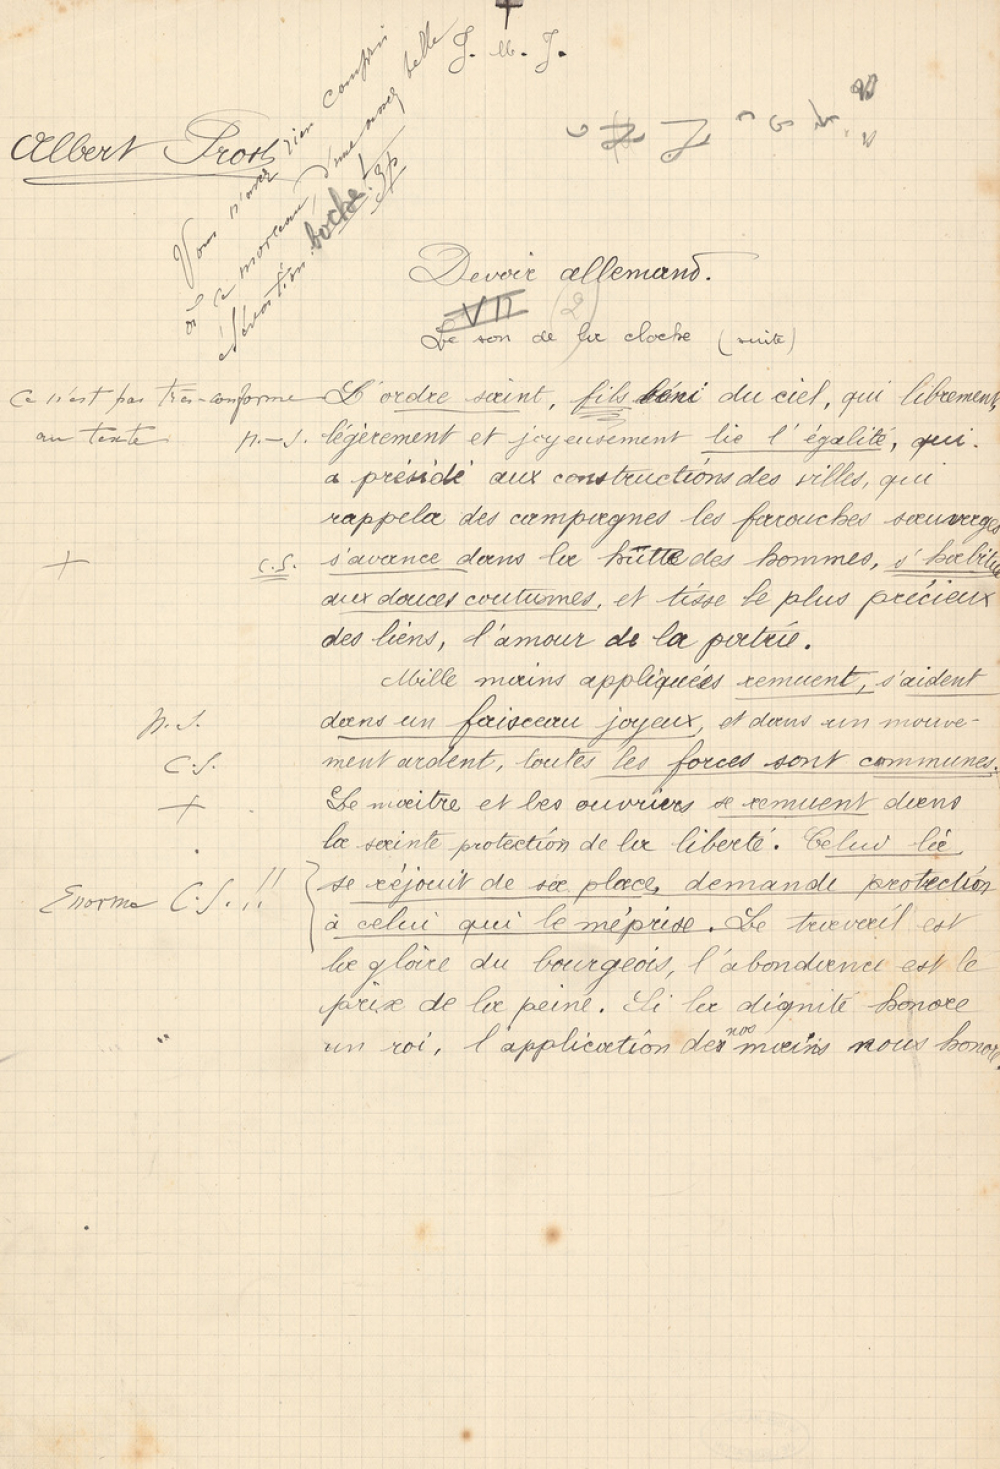 J. M. J.
Albert Prost
Vous n'avez rien compris
à ce morceau, d'une assez belle
élévation boche!
Devoir allemand.
VII (2)
Le son de la cloche (suite)
Ce n'est pas très-conforme
au texte n.-s.
L'ordre saint, fils béni du ciel, qui librement,
légèrement et joyeusement lie l'égalité, qui
a présidé aux constructions des villes, qui
rappela des campagnes les farouches sauvages
+ C.S. s'avance dans la hütte des hommes, s'habitue
aux douces coutumes, et tisse le plus précieux
des liens, l'amour de la patrie.
Mille mains appliquées remuent, s'aident
n.S. dans un faisceau joyeux, et dans un mouve-
C.S. ment ardent, toutes les forces sont communes.
+ Le maitre et les ouvriers se remuent dans
la sainte protection de la liberté. Celui là
Enorme C.S.!! se réjouit de sa place, demande protection
à celui qui le méprise. Le travail est
la gloire du bourgeois, l'abondance est le
prix de la peine. Si la dignité honore
un roi, l'application des nos mains nous honore.